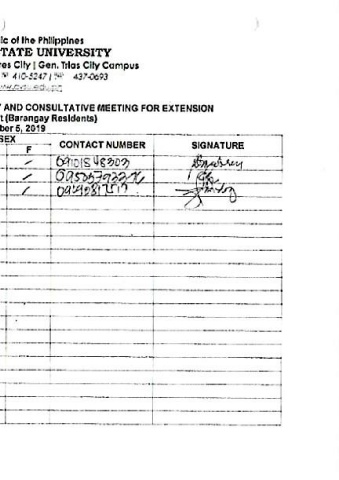 ic of the Philippines
TATE UNIVERSITY
res City | Gen. Trias City Campus
410-5247 | 437-0693
AND CONSULTATIVE MEETING FOR EXTENSION
t (Barangay Residents)
ber 5, 2019
SEX
F CONTACT NUMBER SIGNATURE
09101548303